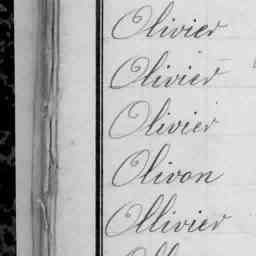 Olivier
Olivier
Olivier
Olivon
Ollivier